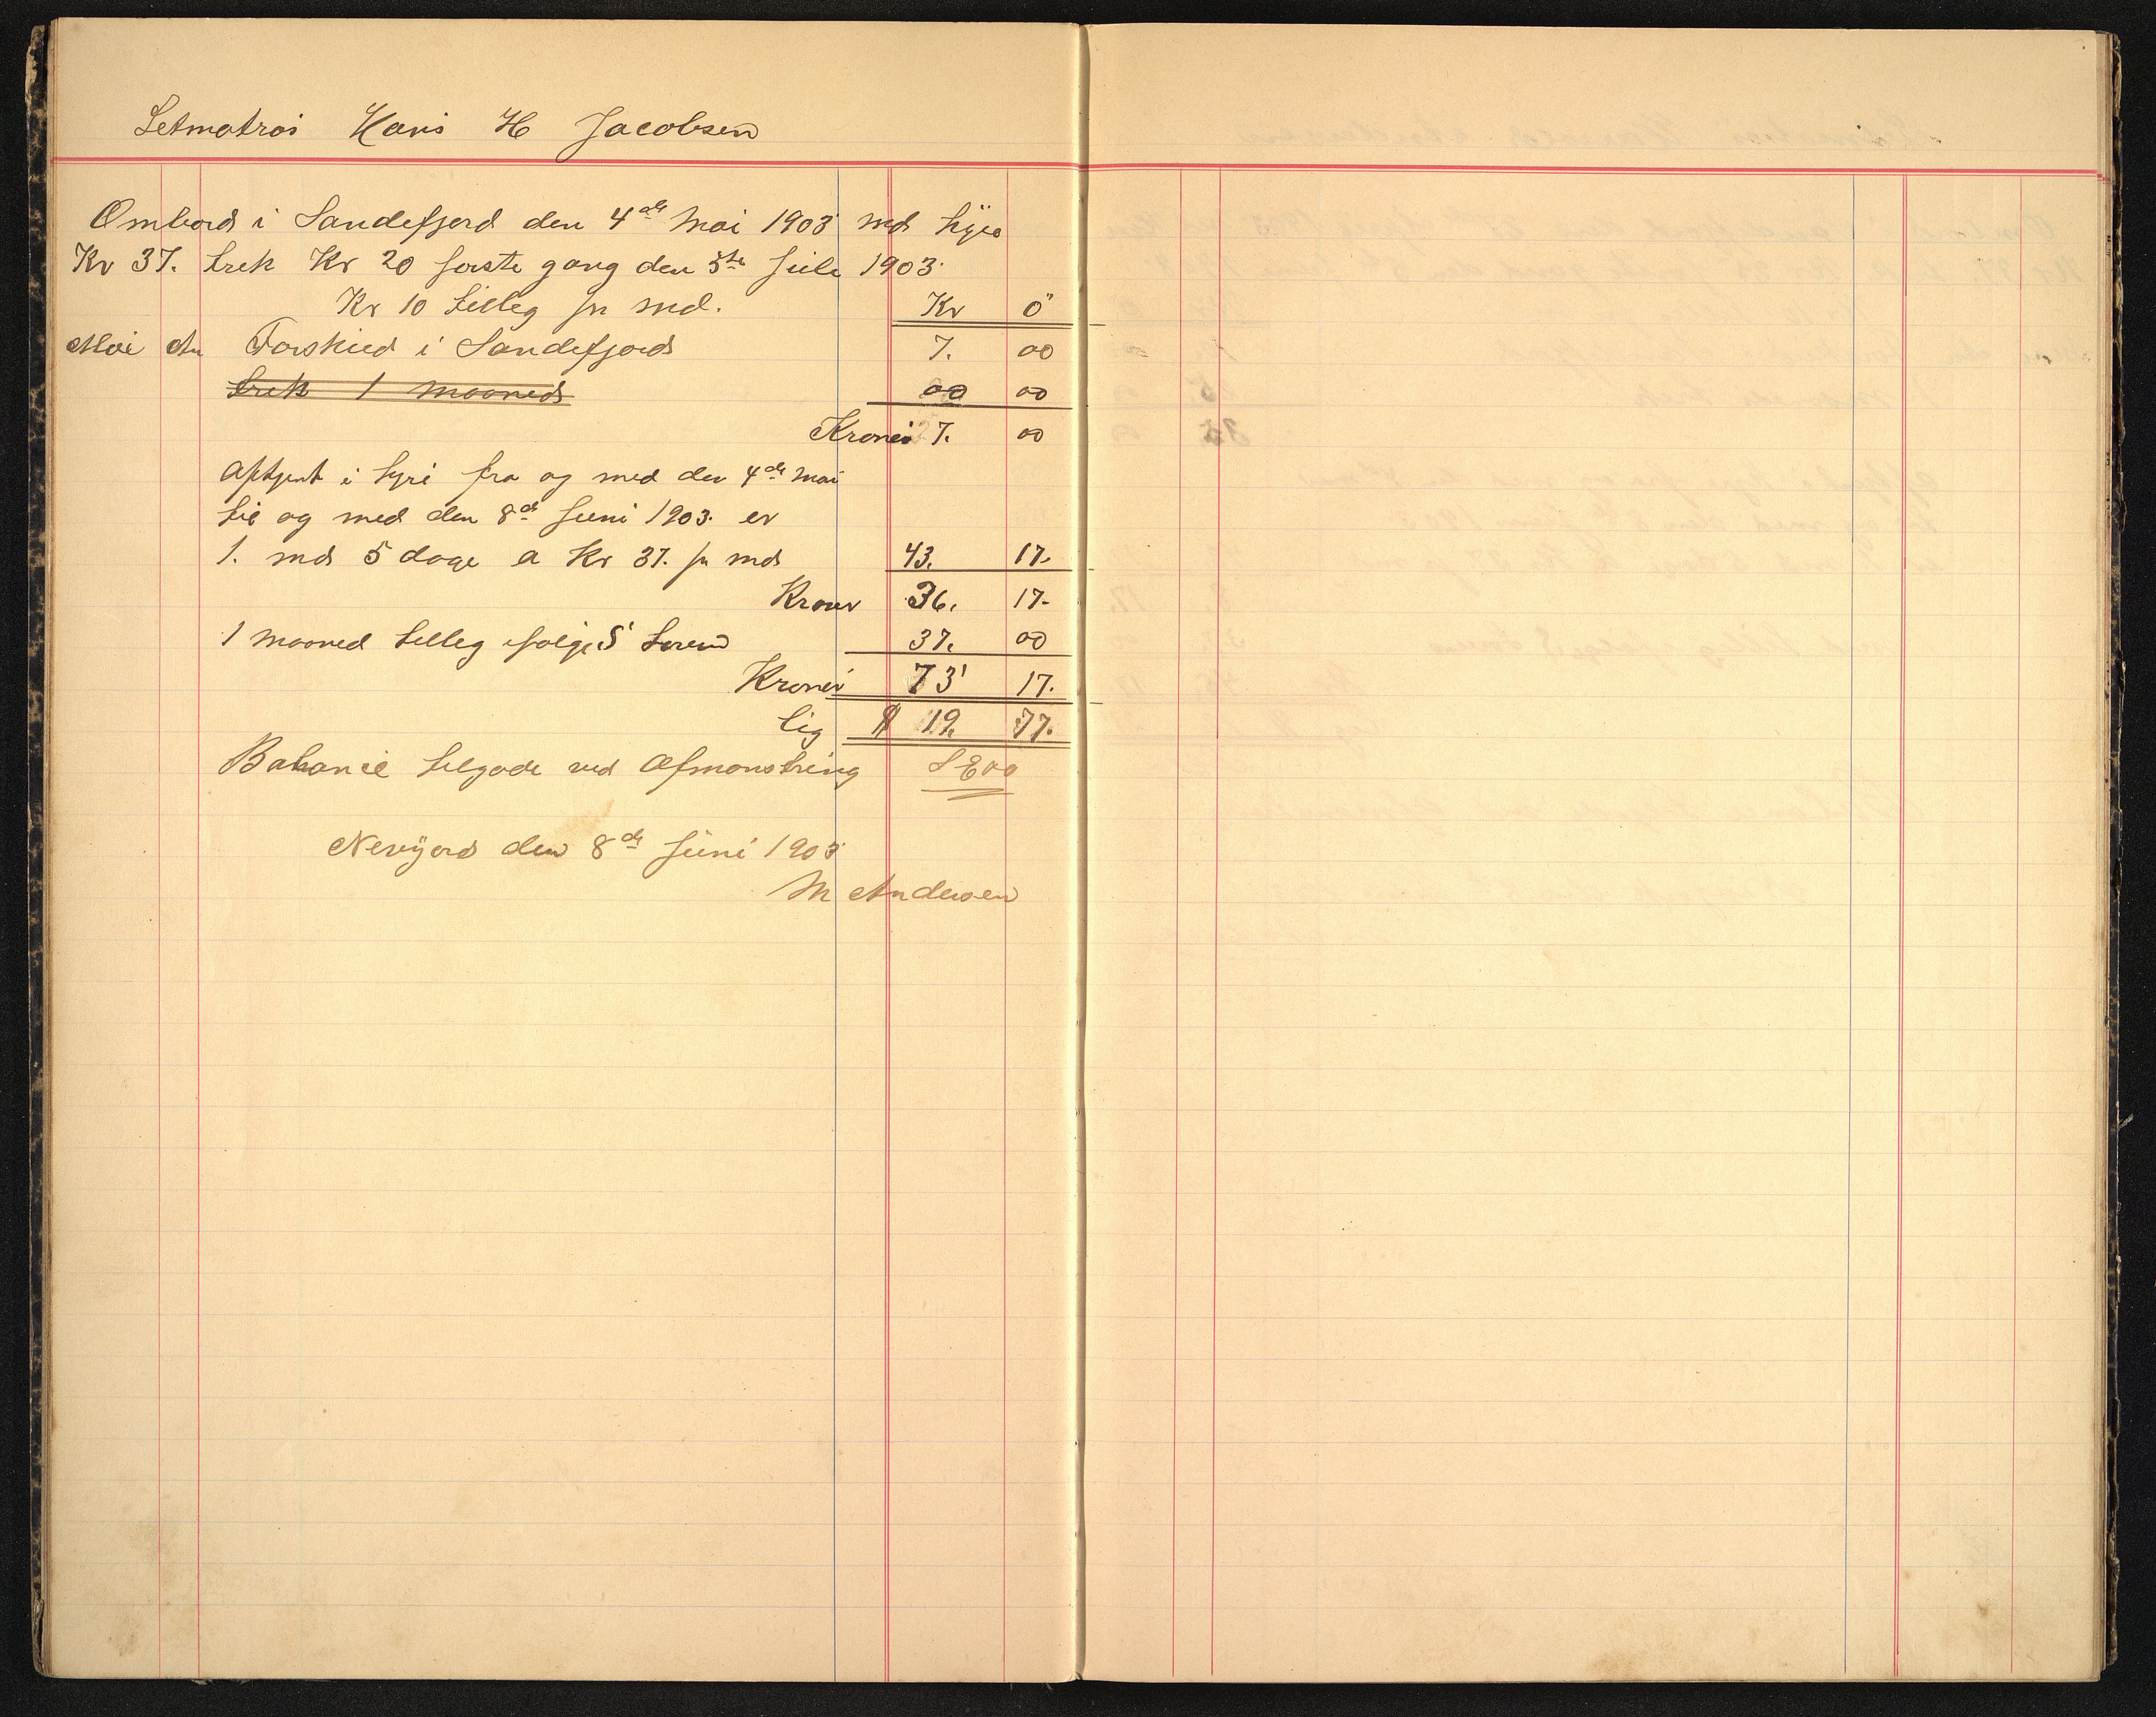 Letmatros Hans H Jacobsen
Ombord i Sandefjord den 4de Mai 1903 md hyre
Kr 37. trek Kr 20 første gang den 5te Juli 1903
Kr 10 tilleg pr md.
Kr Ö
Mai An Forskud i Sandefjord 7. 00
trek 1 maaned 00 00
Kroner 7. 00
Aftjent i hyre fra og med den 4de Mai
til og med den 8de Juni 1903. er
1. md 5 dage a Kr 37. pr md 43. 17.
Kroner 36. 17-
1 maaned tilleg ifølge S 37. 00
Kroner 73 17.
lig $ 19. 77.
Balance tilgode ved Afmønstring
Nevyork den 8de Juni 1903
M Andersen